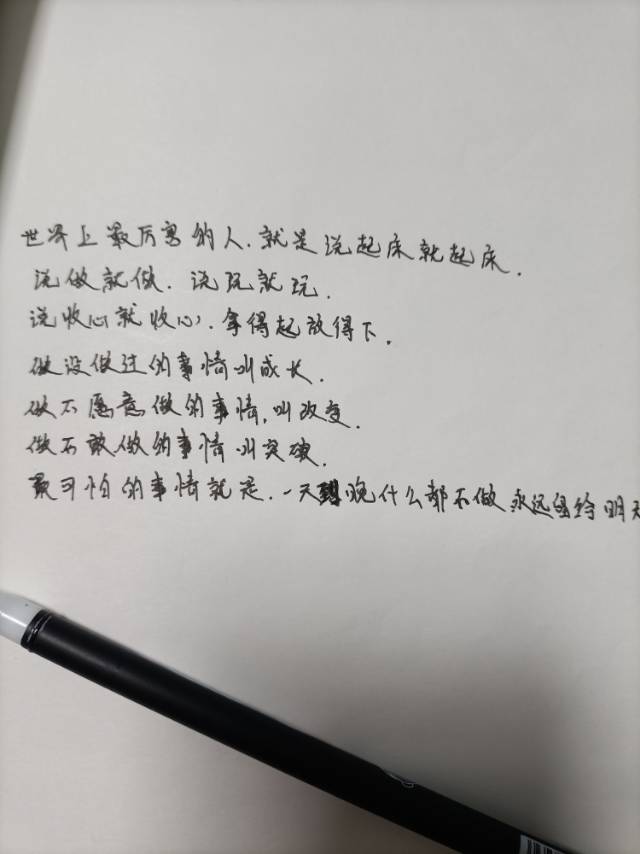 世界上最厉害的人.就是说起床就起床.
说做就做.说玩就玩.
说收心就收心,拿得起放得下.
做没做过的事情叫成长.
做不愿意做的事情,叫改变.
做不敢做的事情叫突破.
最可怕的事情就是.一天到晚什么都不做永远留给明天